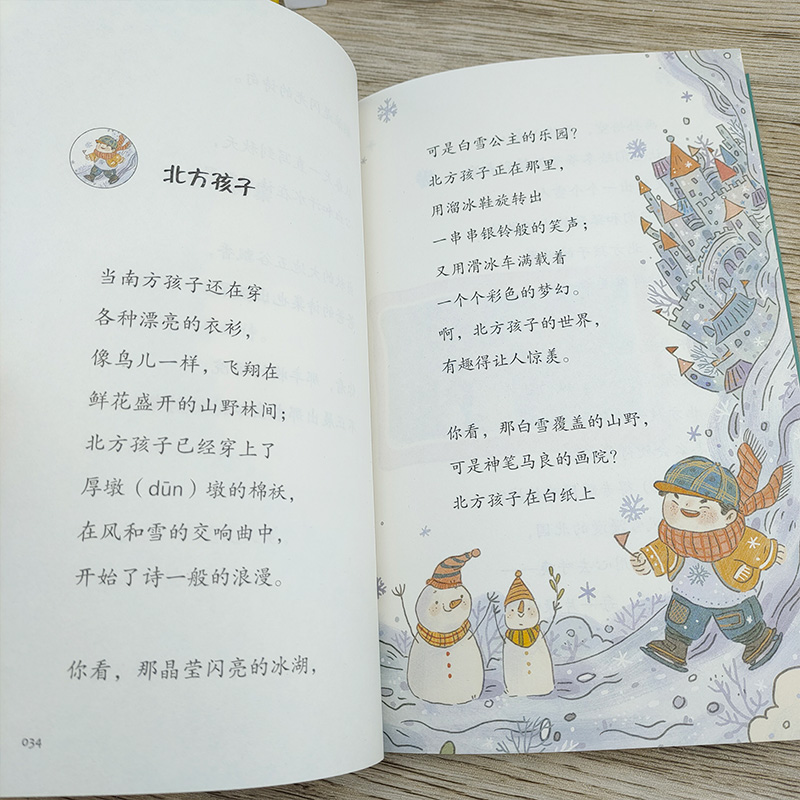 北方孩子
当南方孩子还在穿
各种漂亮的衣衫，
像鸟儿一样，飞翔在
鲜花盛开的山野林间；
北方孩子已经穿上了
厚墩（dūn）墩的棉袄，
在风和雪的交响曲中，
开始了诗一般的浪漫。
你看，那晶莹闪亮的冰湖，
034
可是白雪公主的乐园？
北方孩子正在那里，
用溜冰鞋旋转出
一串串银铃般的笑声；
又用滑冰车满载着
一个个彩色的梦幻。
啊，北方孩子的世界，
有趣得让人惊羡。
你看，那白雪覆盖的山野，
可是神笔马良的画院？
北方孩子在白纸上